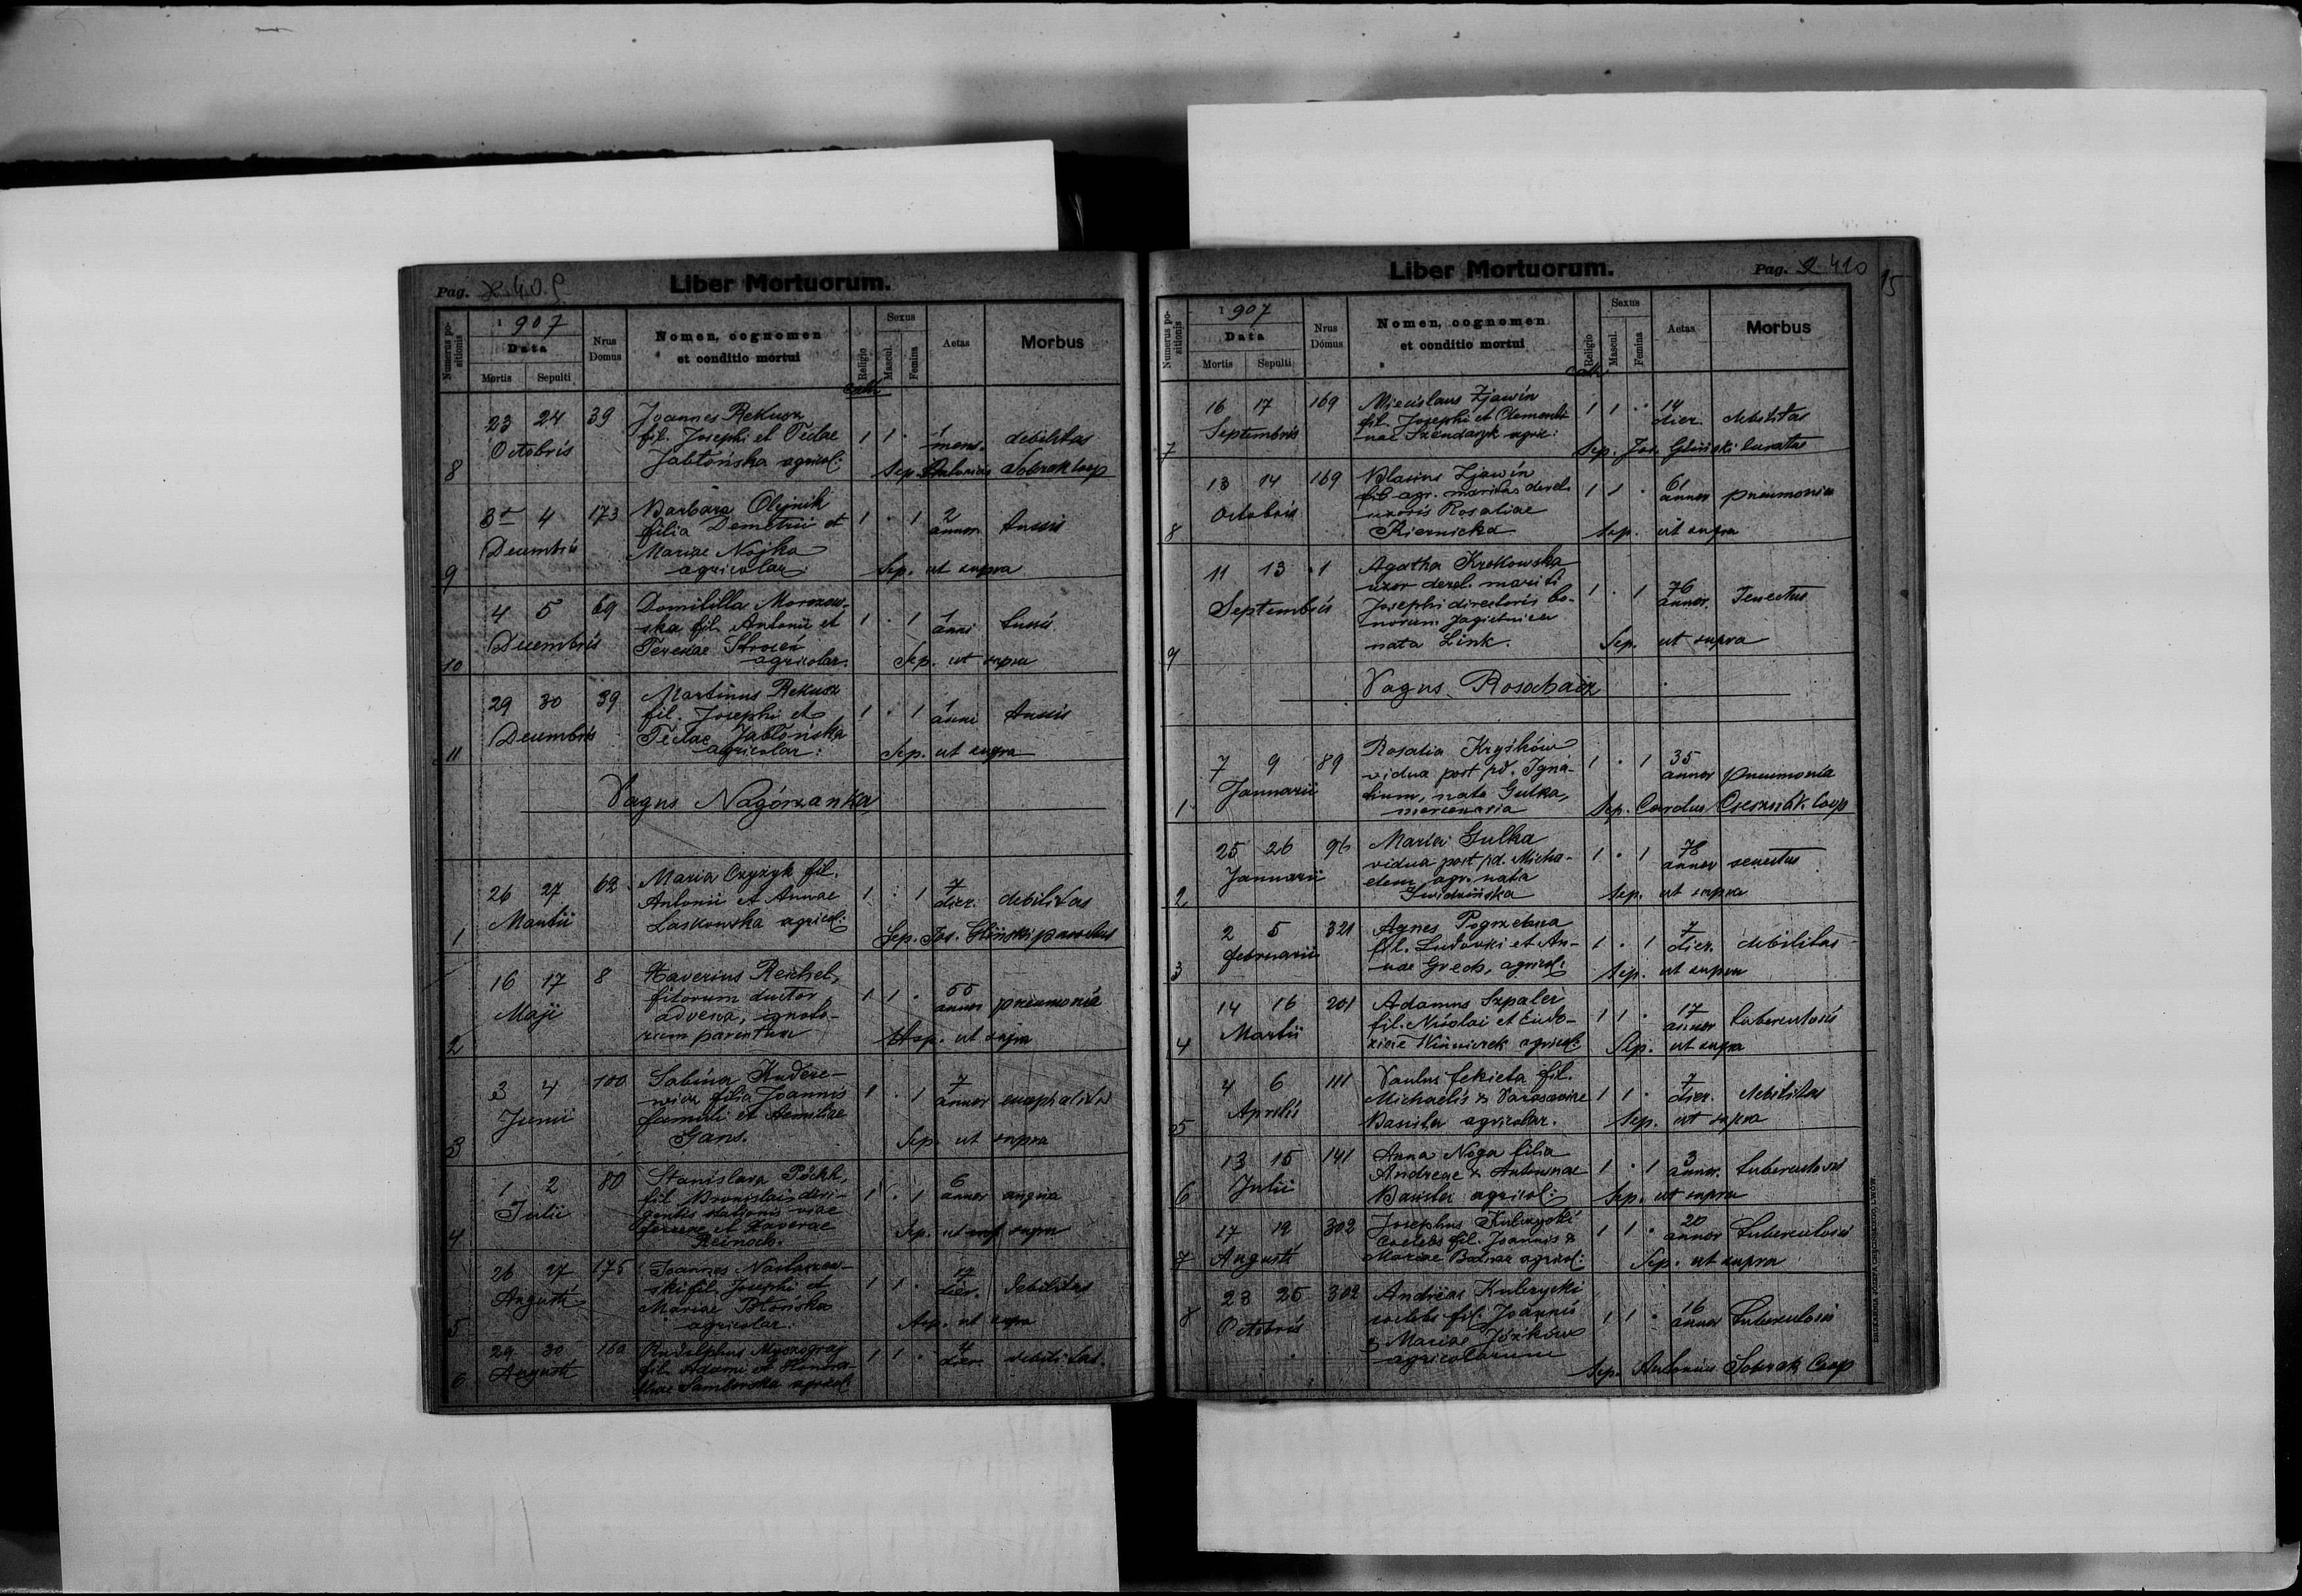 Pag. 409 Liber Mortuorum.
Numerus positionis 1907 Data Mortis Sepulti Nrus Domus Nomen, cognomen et conditio mortui Religio Sexus Mascul. Femina Aetas Morbus
cath
8 23 24 39 Joannes Rekusz 1 1 . 1
Octobris fil. Josephi et Teclae mens. debilitas
Jabłońska agricol: Sep. Antonius Sobrak Coop
9 3 4 173 Barbara Olejnik 1 . 1 2
filia Demetrii et annor. tussis
Decembris Mariae Nojka
agricolar: Sep. ut supra
10 4 5 69 Domitilla Morozow-
ska fil. Antonii et 1 . 1 1 anni tussis
Decembris Teresiae
agricolar. Sep. ut supra
11 29 30 39 Martinus Rekusz
fil. Josephi et 1 . 1 1 anni tussis
Decembris Teclae Jabłońska
agricolar: Sep. ut supra
Pagus Nagórzanka
1 26 27 62 Maria Czyzyk fil. 7
Martii Antonii et Annae 1 . 1 dier. debilitas
Laskowska agricol: Sep. Jos. Gliński parochus
2 16 17 8 Xaverius Reichel, 55
Maji filorum ductor 1 1 . annor pneumonia
advena, ignoto-
rum parentum Sep. ut supra
3 3 4 100 Sabina Kudere-
wicz filia Joannis 1 . 1 7 annor encephalitis
Junii famuli et Aemiliae
Gans. Sep. ut supra
4 1 2 80 Stanislava Pöckh,
fil Bronislai diri- 1 . 1 6 annor angina
Julii gentis stationis viae
ferreae et Xaverae Sep. ut supra
Reinoch.
5 26 27 175 Joannes
ski fil. Josephi et 1 1 . 17 dier. debilitas
Augusti Mariae Błońska
agricolar: Sep. ut supra
6 29 30 160 Rudolphus Myszograj
fil. Adami et Honora- 1 1 . 4 dier. debilitas.
Augusti thae Samborska agricol
Liber Mortuorum. Pag. 410 15
Numerus positionis 1907 Data Mortis Sepulti Nrus Domus Nomen, cognomen et conditio mortui Religio Sexus Mascul. Femina Aetas Morbus
cath
7 16 17 169 Miecislaus Zjawin 1 1 . 14
Septembris fil. Josephi et Clementi- dier. debilitas
nae Szendaryk agric: Sep. Jos. Gliński curatus
8 13 14 169 Blasius Zjawin 1 1 . 61
fil agr. maritus derel. annor pneumonia
Octobris uxoris Rosaliae
Kiernicka Sep. ut supra
9 11 13 1 Agatha Krokowska
uxor derel. mariti 1 . 1 76 annor. Senectus
Septembris Josephi directoris bo-
norum Jagielnica
nata Link. Sep. ut supra
Pagus Rosochacz
1 7 9 89 Rosalia Kryśków
vidua post pd. Igna- 1 . 1 35 annor pneumonia
Januarii tium, nata Gulka,
mercenaria Sep. Carolus Coop
2 25 26 96 Maria Gulka
vidua post pd. Micha- 1 . 1 78 annor senectus
Januarii elem agr. nata
Świdzińska Sep. ut supra
3 2 5 321 Agnes Pogrzebna
Februarii fil. Ludovici et An- 1 . 1 7 dier. debilitas
nae Grech, agricol: Sep. ut supra
4 14 16 201 Adamus Szpaler
Martii fil. Nicolai et Eudo- 1 1 . 17 annor tuberculosis
xiae agricol: Sep. ut supra
5 4 6 111 Paulus Fekieta fil.
Aprilis Michaelis & Parasceviae 1 1 . 7 dier. debilitas
agricolar. Sep. ut supra
6 13 15 141 Anna Noga filia
Julii Andreae & Antoninae 1 . 1 3 annor. tuberculosis
agricol: Sep. ut supra
7 17 19 302 Josephus Kubrycki
Augusti coelebs fil. Joannis & 1 1 . 20 annor tuberculosis
Mariae agricol: Sep. ut supra
8 23 25 302 Andreas Kubrycki
Octobris coelebs fil. Joannis 1 1 . 16 annor tuberculosis
& Mariae Józików
agricolarum Sep. Antonius Sobrak Coop
DRUKARNIA JÓZEFA CHĘCIŃSKIEGO, LWÓW.